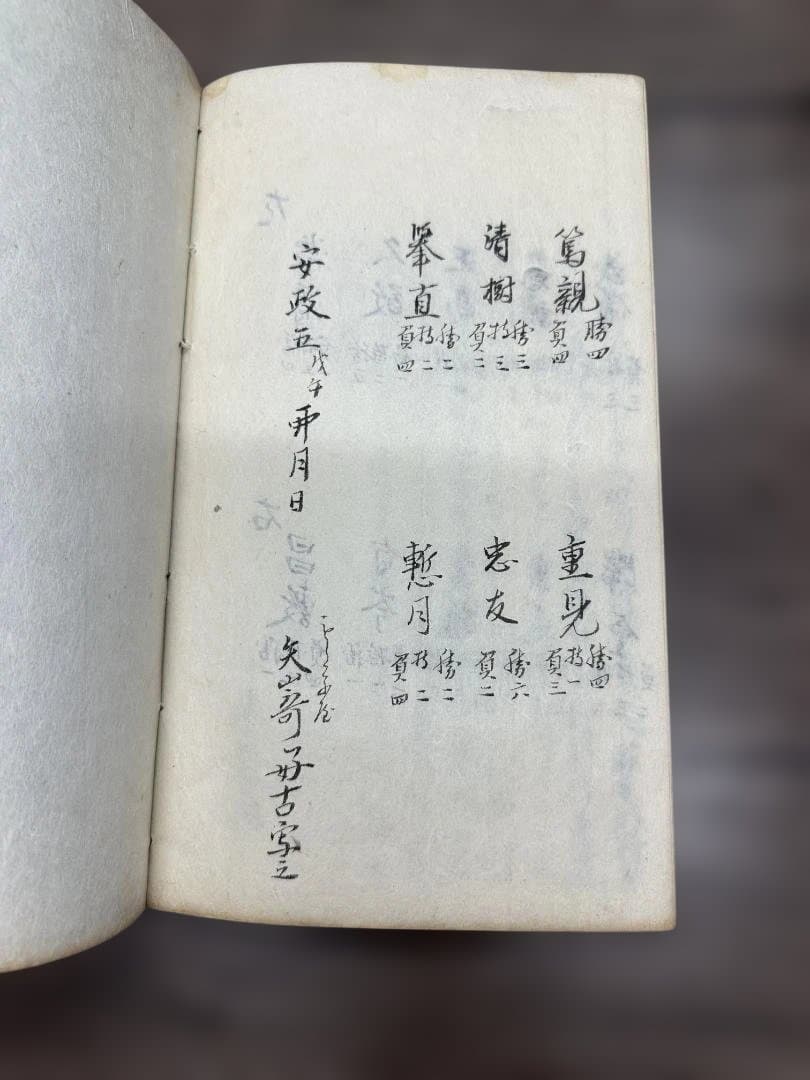 篤親 勝四 負四
重見 勝四 持一 負三
清樹 勝三 持三 負二
忠友 勝六 負二
擧直 勝二 持二 負四
慙月 勝二 持二 負四
安政五戊午 月日
矢嵜好古写之